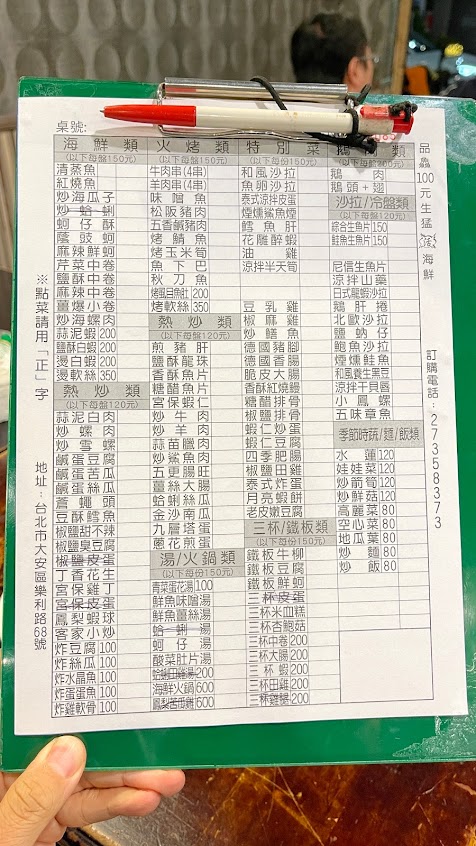 桌號:
海鮮類
(以下每盤150元)
清蒸魚
紅燒魚
炒海瓜子
炒蛤蜊
蚵仔酥
蔭豉蚵
麻辣鮮蚵
芹菜中卷
鹽酥中卷
麻辣中卷
薑爆小卷
炒海螺肉
蒜泥蝦 200
鹽酥白蝦 200
燙白蝦 200
燙軟絲 350
熱炒類
(以下每盤120元)
蒜泥白肉
炒螺肉
炒雪螺
鹹蛋豆腐
鹹蛋苦瓜
鹹蛋絲瓜
蒼蠅頭
豆酥鱈魚
椒鹽甜不辣
椒鹽臭豆腐
椒鹽皮蛋
丁香花生
宮保雞丁
宮保皮蛋
鳳梨蝦球
客家小炒
炸豆腐 100
炸絲瓜 100
炸水晶魚 100
炸蛋蛋魚 100
炸雞軟骨 100
火烤類
(以下每盤150元)
牛肉串(4串)
羊肉串(4串)
味噌魚
松阪豬肉
五香鹹豬肉
烤鯖魚
烤玉米筍
魚下巴
秋刀魚
烤風目魚肚 200
烤軟絲 350
熱炒類
(以下每盤120元)
煎豬肝
鹽酥龍珠
香酥魚片
糖醋魚片
宮保蝦仁
炒牛肉
炒羊肉
蒜苗臘肉
炒鯊魚肉
五更腸旺
薑絲大腸
蛤蜊絲瓜
金沙南瓜
九層塔蛋
蔥花煎蛋
湯/火鍋類
(以下每份150元)
青菜蛋花湯 100
鮮魚味噌湯
鮮魚薑絲湯
蛤蜊湯
蚵仔湯
酸菜肚片湯
蛤蜊田雞湯 200
海鮮火鍋 600
鳳梨苦瓜雞 600
特別菜
(以下每份150元)
和風沙拉
魚卵沙拉
泰式涼拌皮蛋
煙燻鯊魚煙
鱈魚肝
花雕醉蝦
油雞
涼拌半天筍
豆乳雞
椒麻雞
炒鱔魚
德國豬腳
德國香腸
脆皮大腸
香酥紅燒鰻
糖醋排骨
椒鹽排骨
蝦仁炒蛋
蝦仁豆腐
四季肥腸
椒鹽田雞
泰式炸蛋
月亮蝦餅
老皮嫩豆腐
三杯/鐵板類
(以下每份150元)
鐵板牛柳
鐵板豆腐
鐵板鮮蚵
三杯皮蛋
三杯米血糕
三杯杏鮑菇
三杯中卷 200
三杯大腸 200
三杯蝦 200
三杯田雞 200
三杯雞腿 200
鵝肉類
鵝肉
鵝頭+翅
沙拉/冷盤類
(以下每盤120元)
綜合生魚片 150
鮭魚生魚片 150
尼信生魚片
涼拌山藥
日式龍蝦沙拉
鵝肝捲
北歐沙拉
鹽蚋仔
鮑魚沙拉
煙燻鮭魚
和風養生黑豆
涼拌干貝唇
小鳳螺
五味章魚
季節時蔬/麵/飯類
水蓮 120
娃娃菜 120
炒箭筍 120
炒鮮菇 120
高麗菜 80
空心菜 80
地瓜葉 80
炒麵 80
炒飯 80
品鱻100元生猛海鮮
訂購電話:27358373
※點菜請用「正」字
地址:台北市大安區樂利路68號